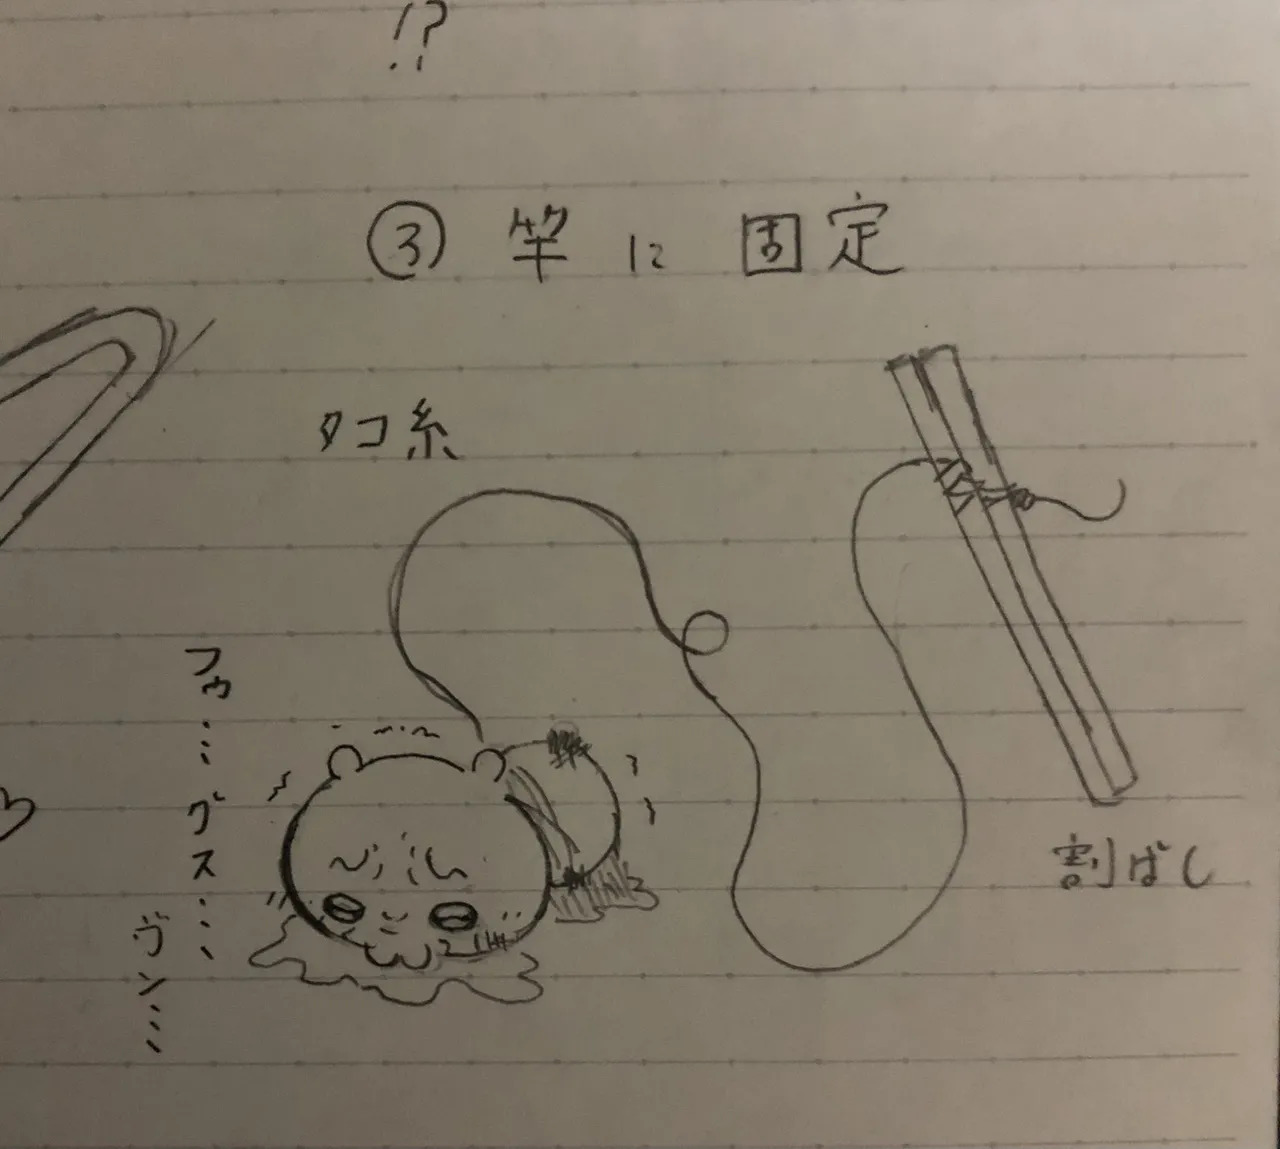 !?
③ 竿に固定
タコ糸
フゥ…… グス……
ヴン……
割ばし